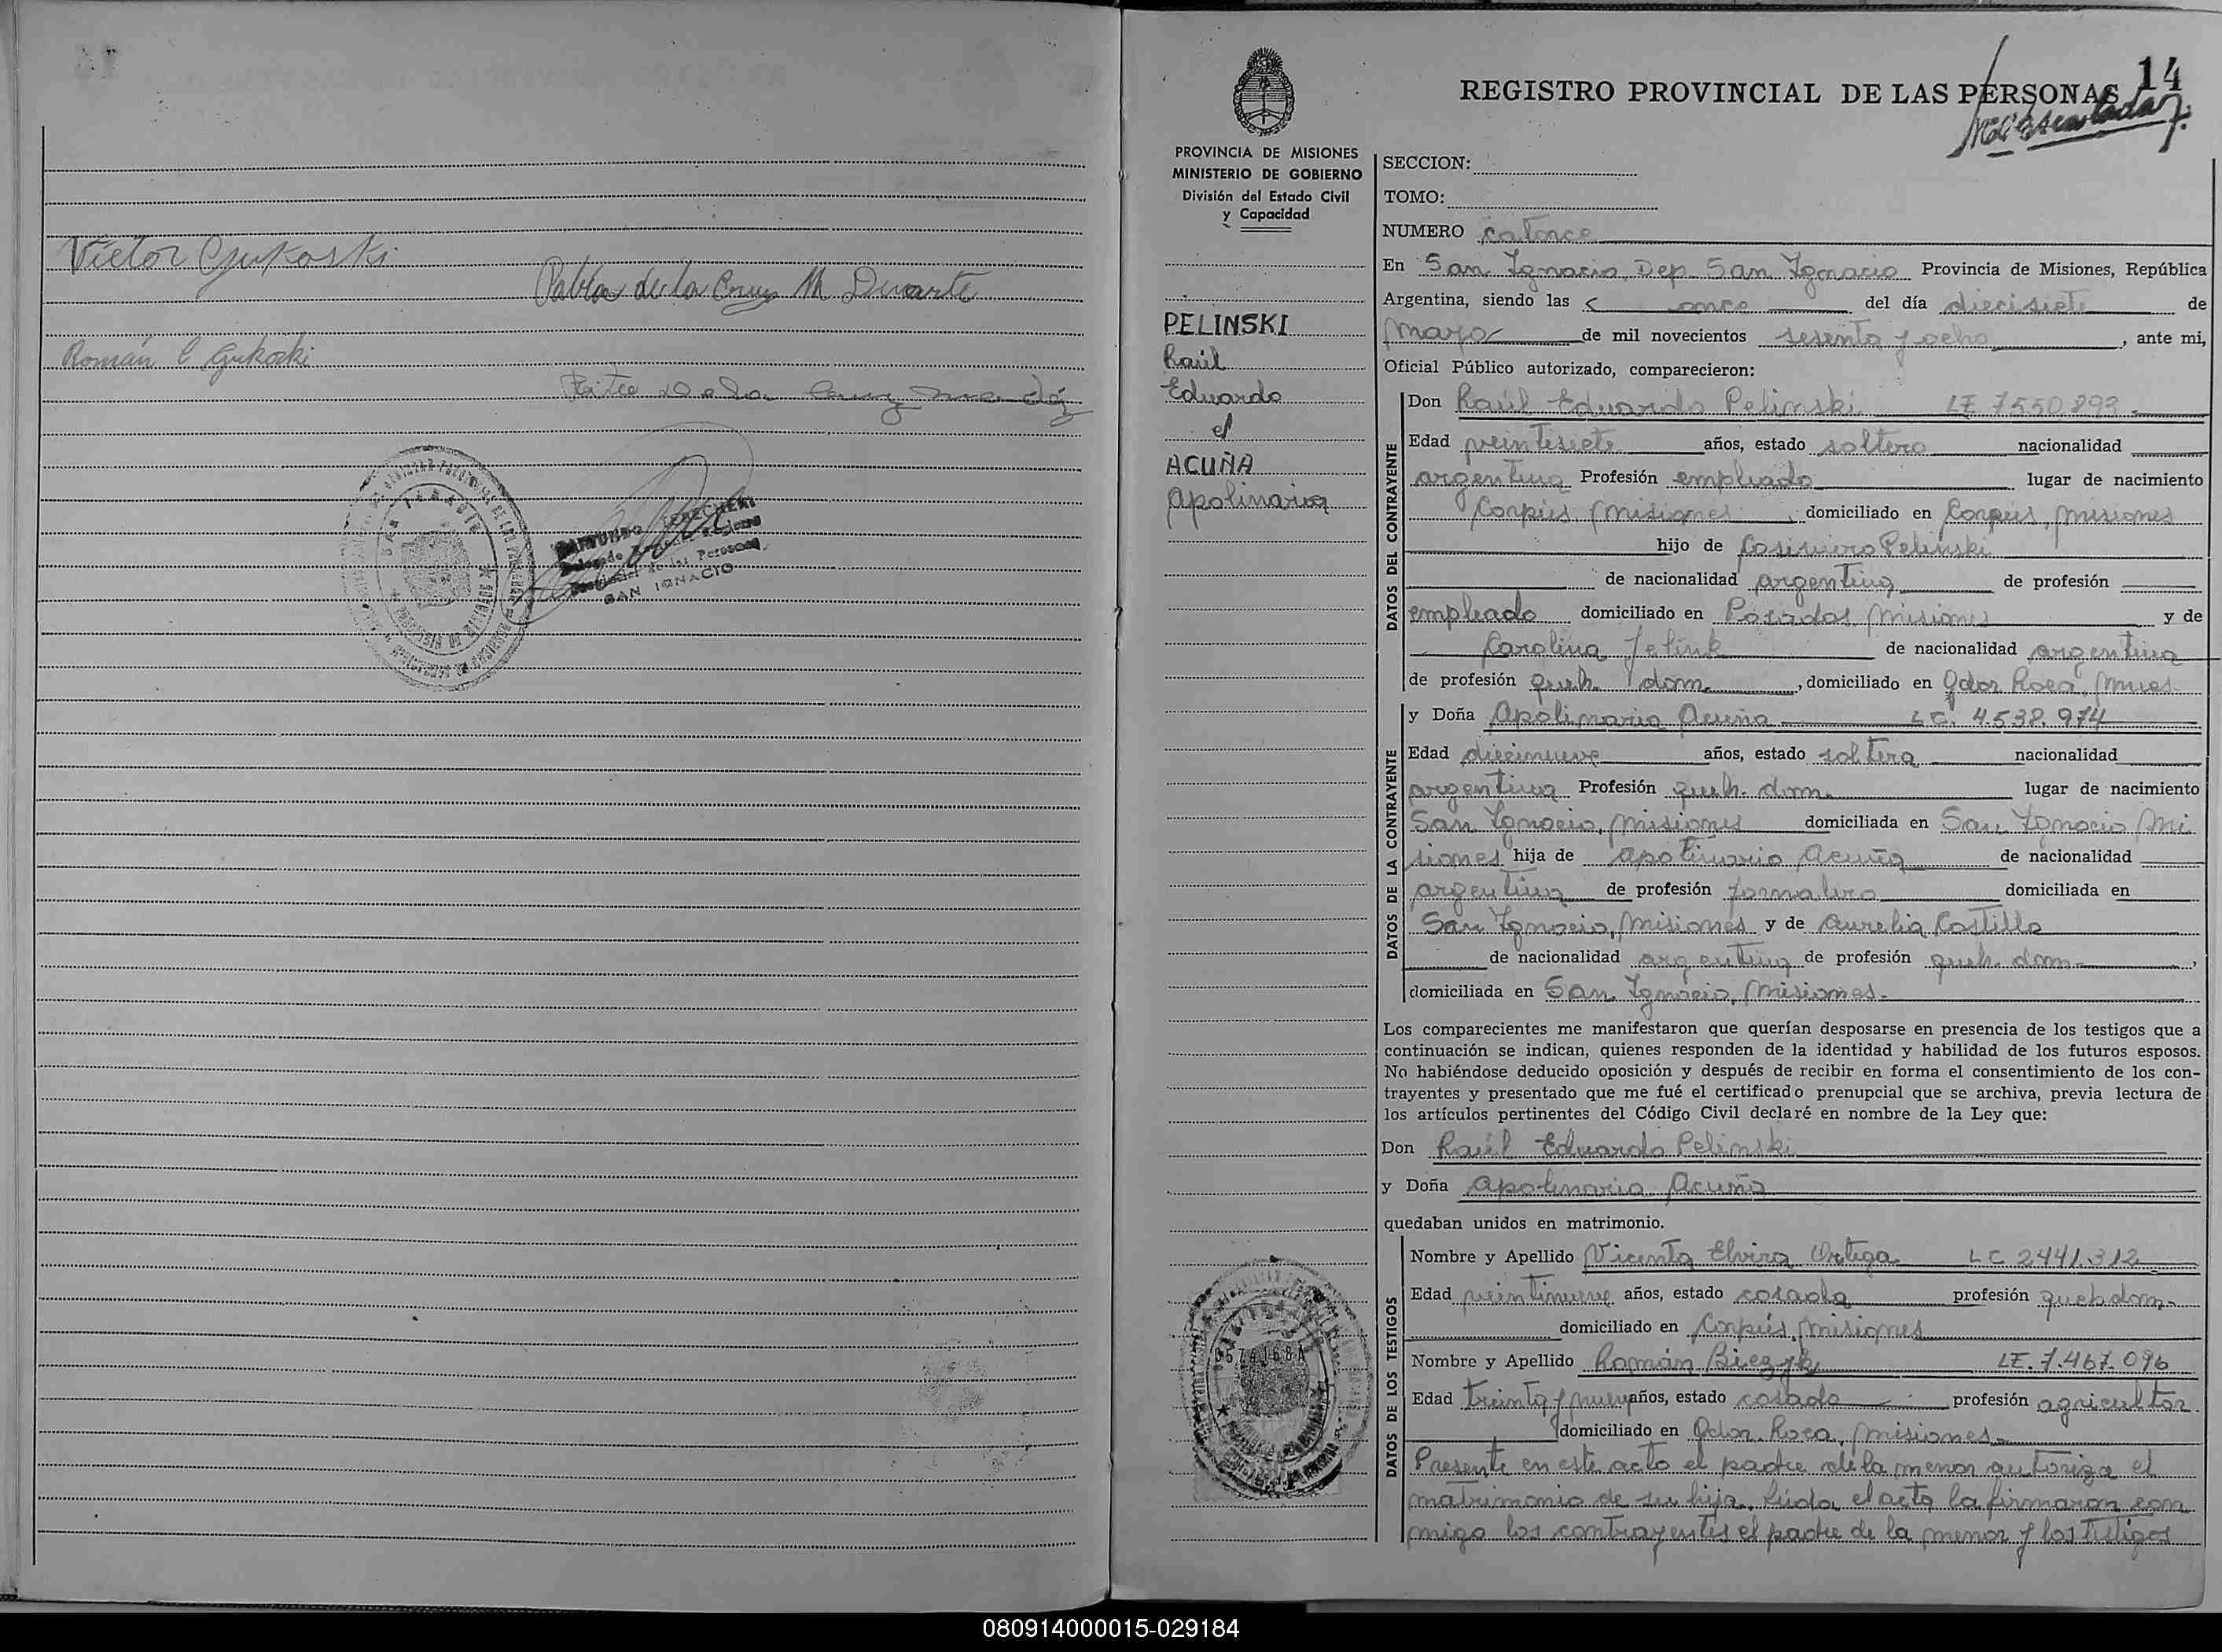 Victor Gukoski
Pabla de la Cruz M Duarte
Román C Gukoski
SAN IGNACIO
14
REGISTRO PROVINCIAL DE LAS PERSONAS
PROVINCIA DE MISIONES
MINISTERIO DE GOBIERNO
División del Estado Civil
y Capacidad
PELINSKI
Raúl
Eduardo
c/
ACUÑA
Apolinaria
SECCION:
TOMO:
NUMERO catorce
En San Ignacio Dep. San Ignacio Provincia de Misiones, República
Argentina, siendo las once del día diecisiete de
mayo de mil novecientos sesenta y ocho, ante mi,
Oficial Público autorizado, comparecieron:
DATOS DEL CONTRAYENTE
Don Raúl Eduardo Pelinski LE 7550.893
Edad veintisiete años, estado soltero nacionalidad
argentina Profesión empleado lugar de nacimiento
Corpus, Misiones domiciliado en Corpus, Misiones
hijo de Casimiro Pelinski
de nacionalidad argentina de profesión
empleado domiciliado en Posadas, Misiones y de
Carolina Jelink de nacionalidad argentina
de profesión queh. dom., domiciliado en Gdor Roca, Mnes.
DATOS DE LA CONTRAYENTE
y Doña Apolinaria Acuña LC. 4.538.974
Edad diecinueve años, estado soltera nacionalidad
argentina Profesión queh. dom. lugar de nacimiento
San Ignacio, Misiones domiciliada en San Ignacio Mi
siones hija de Apolinario Acuña de nacionalidad
argentina de profesión jornalero domiciliada en
San Ignacio, Misiones y de Aurelia Castillo
de nacionalidad argentina de profesión queh. dom.,
domiciliada en San Ignacio, Misiones.
Los comparecientes me manifestaron que querían desposarse en presencia de los testigos que a
continuación se indican, quienes responden de la identidad y habilidad de los futuros esposos.
No habiéndose deducido oposición y después de recibir en forma el consentimiento de los con-
trayentes y presentado que me fué el certificado prenupcial que se archiva, previa lectura de
los artículos pertinentes del Código Civil declaré en nombre de la Ley que:
Don Raúl Eduardo Pelinski
y Doña Apolinaria Acuña
quedaban unidos en matrimonio.
DATOS DE LOS TESTIGOS
Nombre y Apellido Vicenta Elvira Ortega LC 2441.312
Edad veintinueve años, estado casada profesión queh dom.
domiciliado en Corpus, Misiones
Nombre y Apellido Román Biezyk LE. 7.467.096
Edad treinta y nueve años, estado casado profesión agricultor
domiciliado en Gdor. Roca, Misiones.
Presente en este acto el padre de la menor autoriza el
matrimonio de su hija. Leída el acta la firmaron con
migo los contrayentes el padre de la menor y los testigos
080914000015-029184